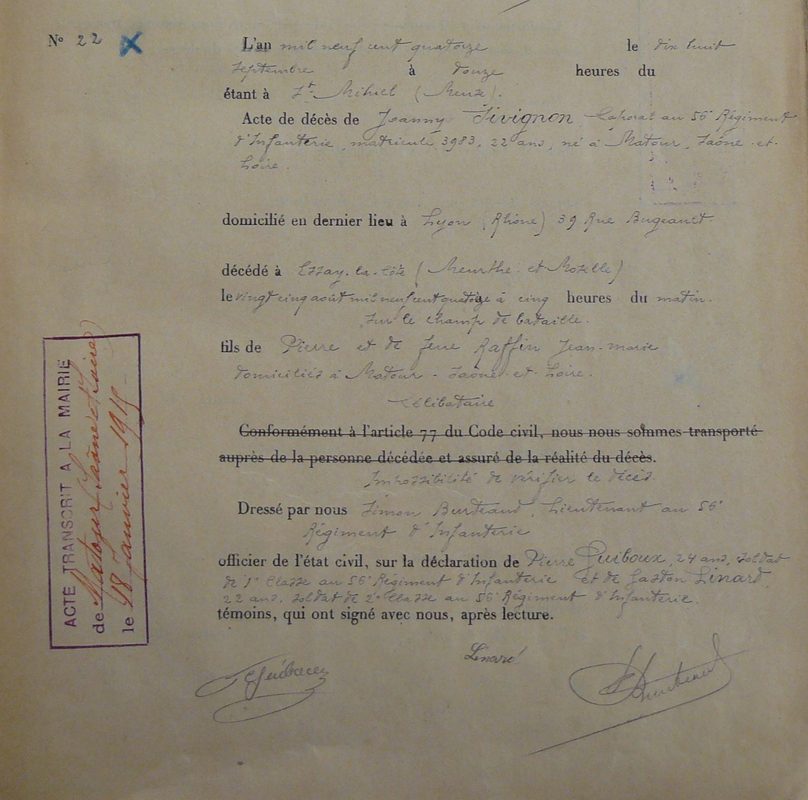 N° 22
L'an mil neuf cent quatorze le dix huit
septembre à douze heures du
étant à St Mihiel (Meuse).
Acte de décès de Joanny Sivignon, Caporal au 56e Régiment
d'Infanterie, matricule 3983, 22 ans, né à Matour, Saône-et-
Loire.
domicilié en dernier lieu à Lyon (Rhône) 39 Rue Bugeaud.
décédé à Essey-la-Côte (Meurthe-et-Moselle)
le vingt cinq août mil neuf cent quatorze à cinq heures du matin.
sur le champ de bataille.
fils de Pierre et de Raffin Jean-marie
domiciliés à Matour - Saône-et-Loire.
Célibataire
Conformément à l'article 77 du Code civil, nous nous sommes transporté
auprès de la personne décédée et assuré de la réalité du décès.
Impossibilité de vérifier le décès.
Dressé par nous Simon Burdeaud, Lieutenant au 56e
Régiment d'Infanterie
officier de l'état civil, sur la déclaration de Pierre Guiboux, 24 ans, soldat
de 1e Classe au 56e Régiment d'Infanterie et de Gaston Linard,
22 ans, soldat de 2e Classe au 56e Régiment d'Infanterie.
témoins, qui ont signé avec nous, après lecture.
Linard
ACTE TRANSCRIT A LA MAIRIE
de Matour (Saône & Loire)
le 18 Janvier 1915